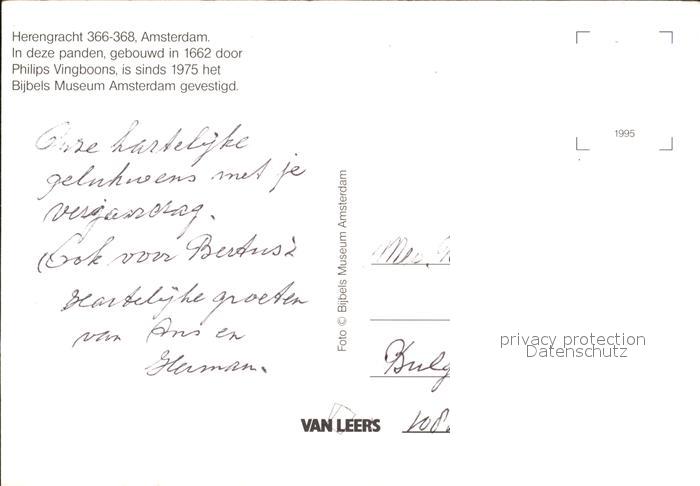 Herengracht 366-368, Amsterdam.
In deze panden, gebouwd in 1662 door
Philips Vingboons, is sinds 1975 het
Bijbels Museum Amsterdam gevestigd.
1995
Onze hartelijke
gelukwens met je
verjaardag.
(Ook voor Bertus
Hartelijke groeten
van Ans en
Herman.
Foto © Bijbels Museum Amsterdam
VAN LEERS
privacy protection
Datenschutz